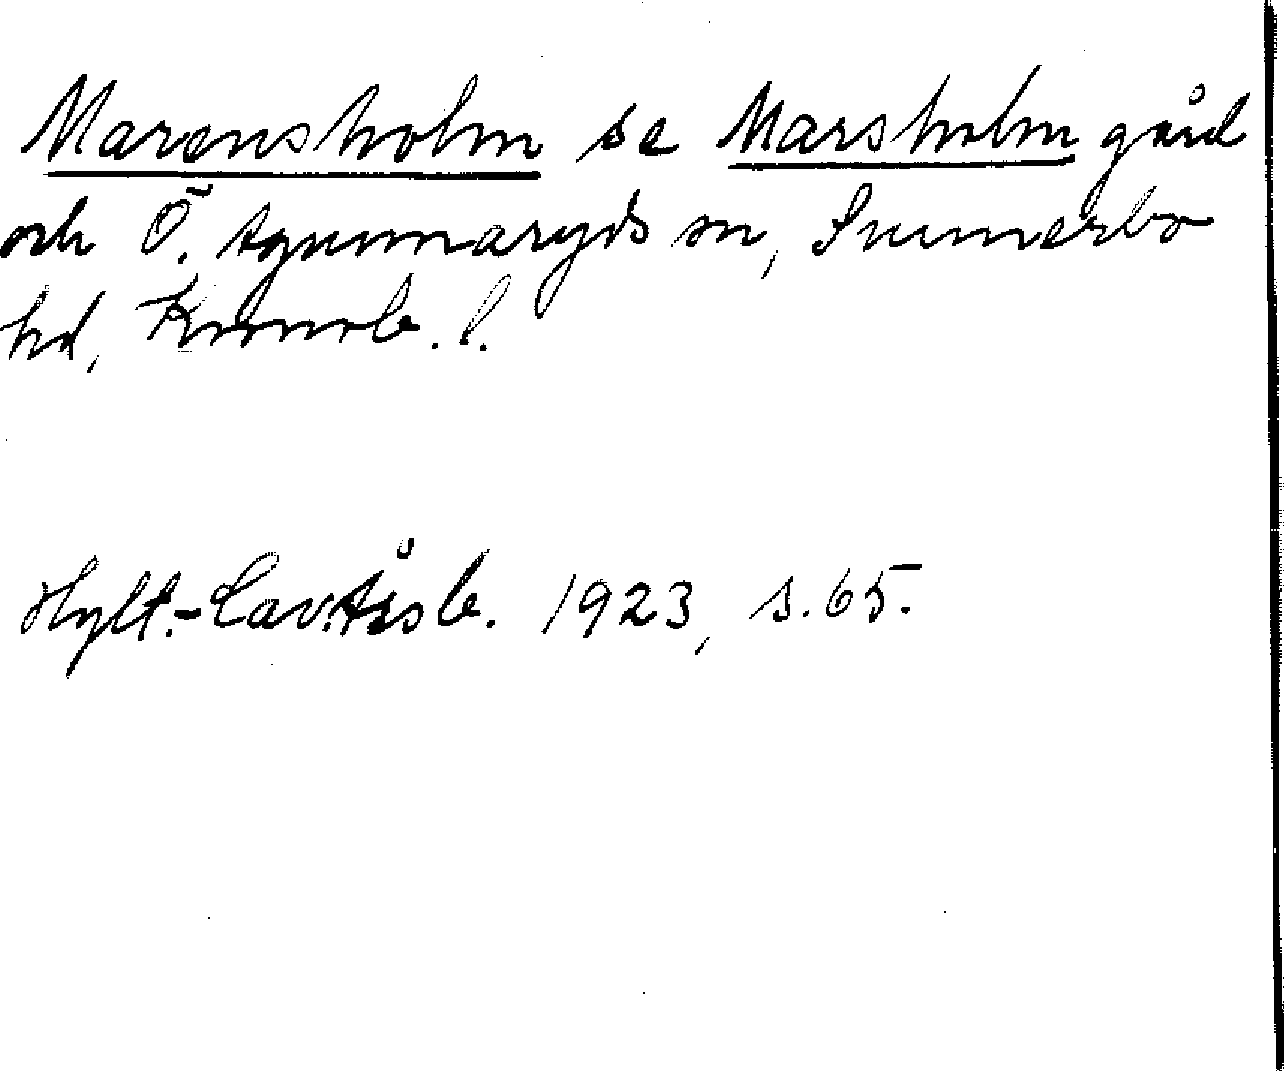 Marensholm se Marsholm gård
och Ö. Agunnaryds sn, Sunnerbo
hd, Kronob. l.
Hylt.-Cav.Årsb. 1923, s. 65.